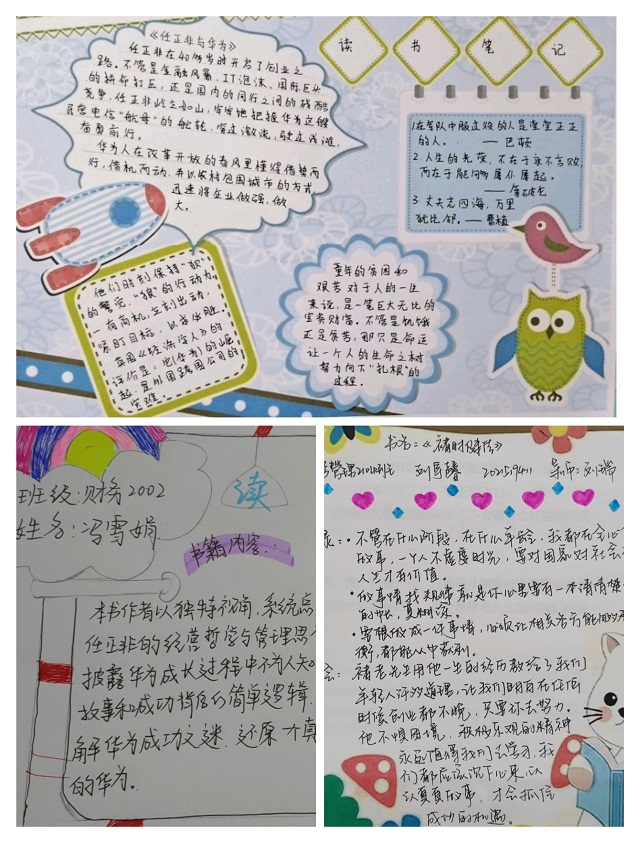 《任正非与华为》
任正非在40多岁时开启了创业之
路。不管是金融风暴、IT泡沫、国际巨头
的拼命打压，还是国内的同行之间的残酷
竞争，任正非屹立如山，牢牢地把握华为这艘
民营电信"航母"的舵轮，穿过激流，驶过浅滩，
奋勇前行。
华为人在改革开放的春风里懂得借势而
行，借机而动，并以农村包围城市的方式
迅速将企业做强、做
大。
读书笔记
1.在军队中服过役的人是堂堂正正
的人。 ——巴顿
2.人生的光荣，不在于永不言败，
而在于能够屡仆屡起。
——拿破仑
3.丈夫志四海，万里
犹比邻。——曹植
他们时刻保持"狼"
的警觉，"狼"的行动力。
一有商机，立刻出动，
紧盯目标，
英国《经济学人》的
评价是：它(华为)的崛
起，是外国跨国公司的
灾难。
童年的贫困和
艰苦对于人的一生
来说，是一笔巨大无比的
宝贵财富。不管是饥饿
还是贫苦，那只是命运
让一个人的生命之树
努力向下"扎根"的
过程。
班级：财务2002
姓名：冯雪娟
读
书籍内容
本书作者以独特视角，系统总
任正非的经营哲学与管理思
披露华为成长过程中不为人知
故事和成功背后的简单逻辑
解华为成功之谜，还原一个真
的华为。
书名：《褚时健传》
不管在什么阶段，在什么年龄，我都在会心
故事，一个人不虚度时光，要对国家对社会
人生才有价值。
做事情找规律就是你心里要有一本清清楚
的帐，真糊涂。
要想做成一件事情，必须让相关各方能
衡，都能从中获利。
褚老先生用他一生的经历教给了我们
年轻人许多道理，让我们明白在任何
时候创业都不晚，只要你去努力。
他不惧困境，积极乐观的精神
永远值得我们去学习，我
们都应该沉下心来，以
认真真做事，才会抓住
成功的机遇。